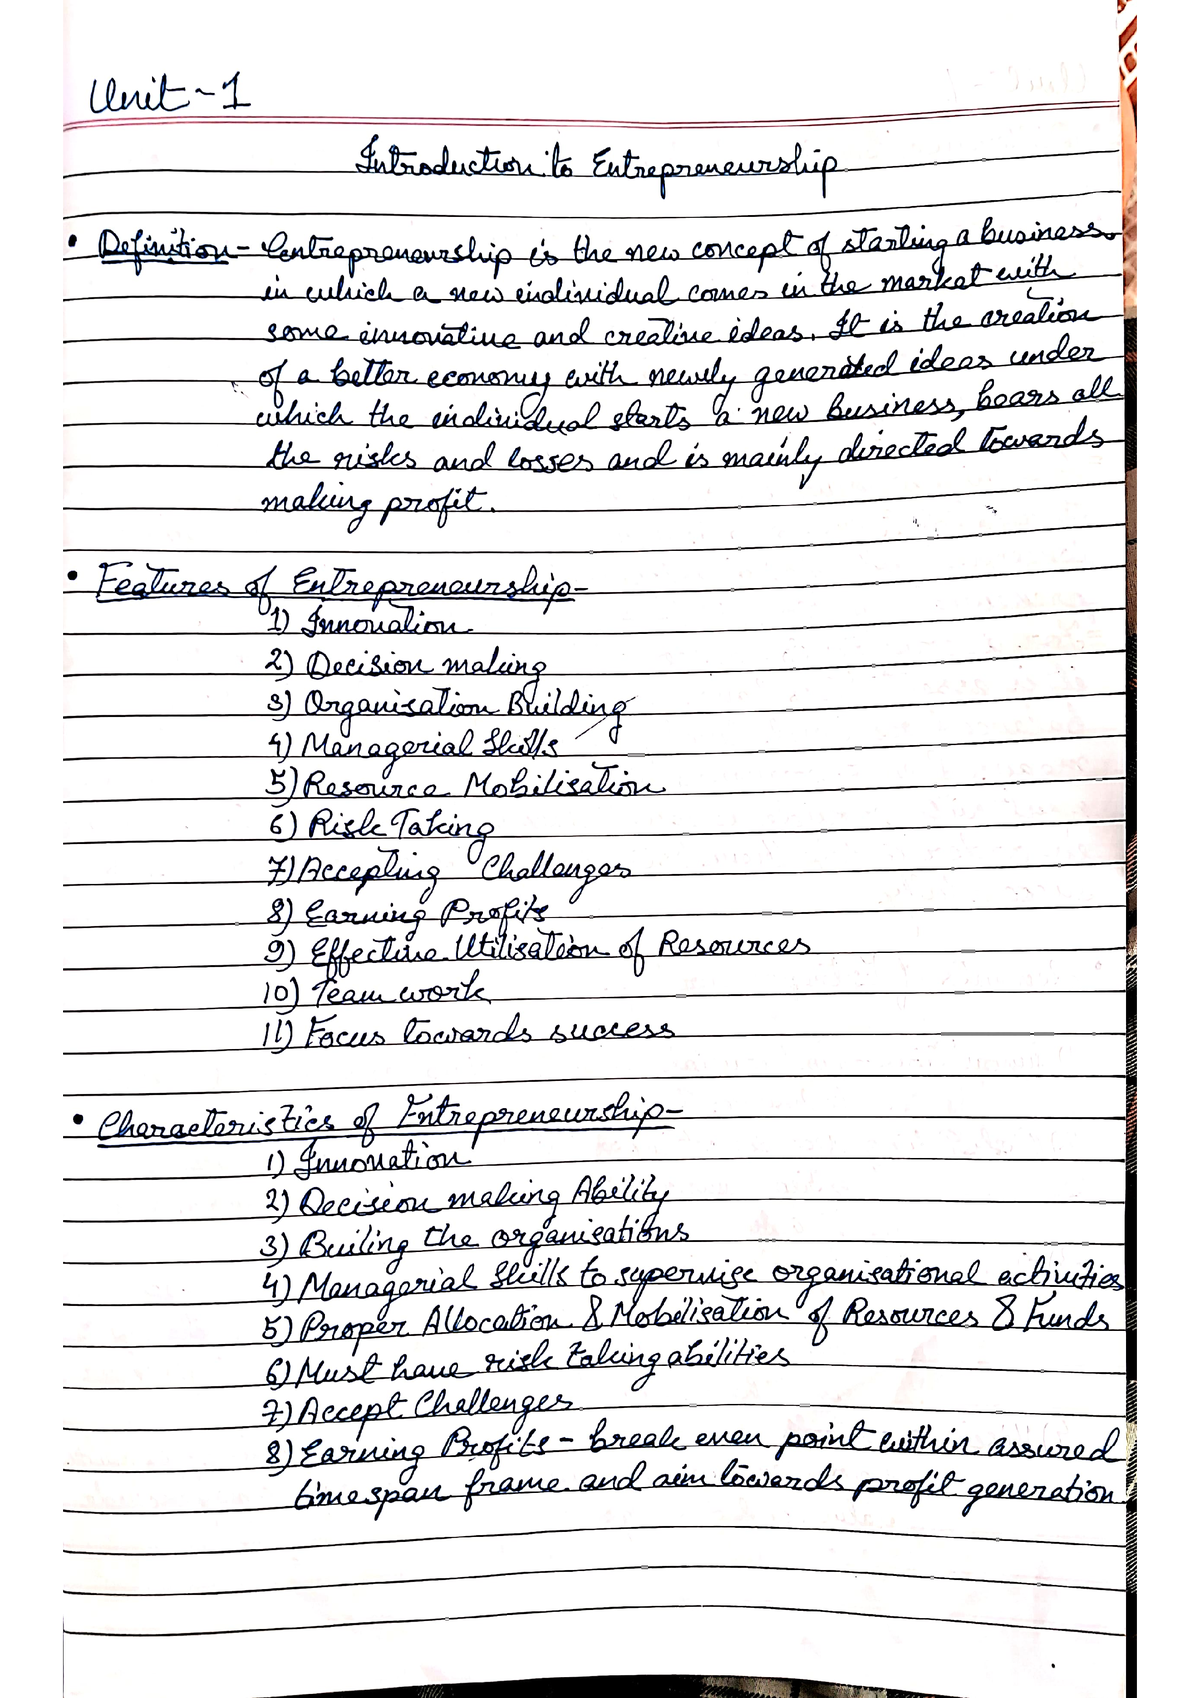 Unit-1
Introduction to Entrepreneurship
• Definition - Entrepreneurship is the new concept of starting a business
in which a new individual comes in the market with
some innovative and creative ideas. It is the creation
of a better economy with newly generated ideas under
which the individual starts a new business, bears all
the risks and losses and is mainly directed towards
making profit.
• Features of Entrepreneurship-
1) Innovation
2) Decision making
3) Organisation Building
4) Managerial Skills
5) Resource Mobilisation
6) Risk Taking
7) Accepting Challenges
8) Earning Profits
9) Effective Utilisation of Resources
10) Team work
11) Focus towards success
• Characteristics of Entrepreneurship-
1) Innovation
2) Decision making Ability
3) Builing the organisations
4) Managerial Skills to supervise organisational activities
5) Proper Allocation & Mobilisation of Resources & Funds
6) Must have risk taking abilities
7) Accept Challenges
8) Earning Profits - break even point within assured
timespan frame and aim towards profit generation